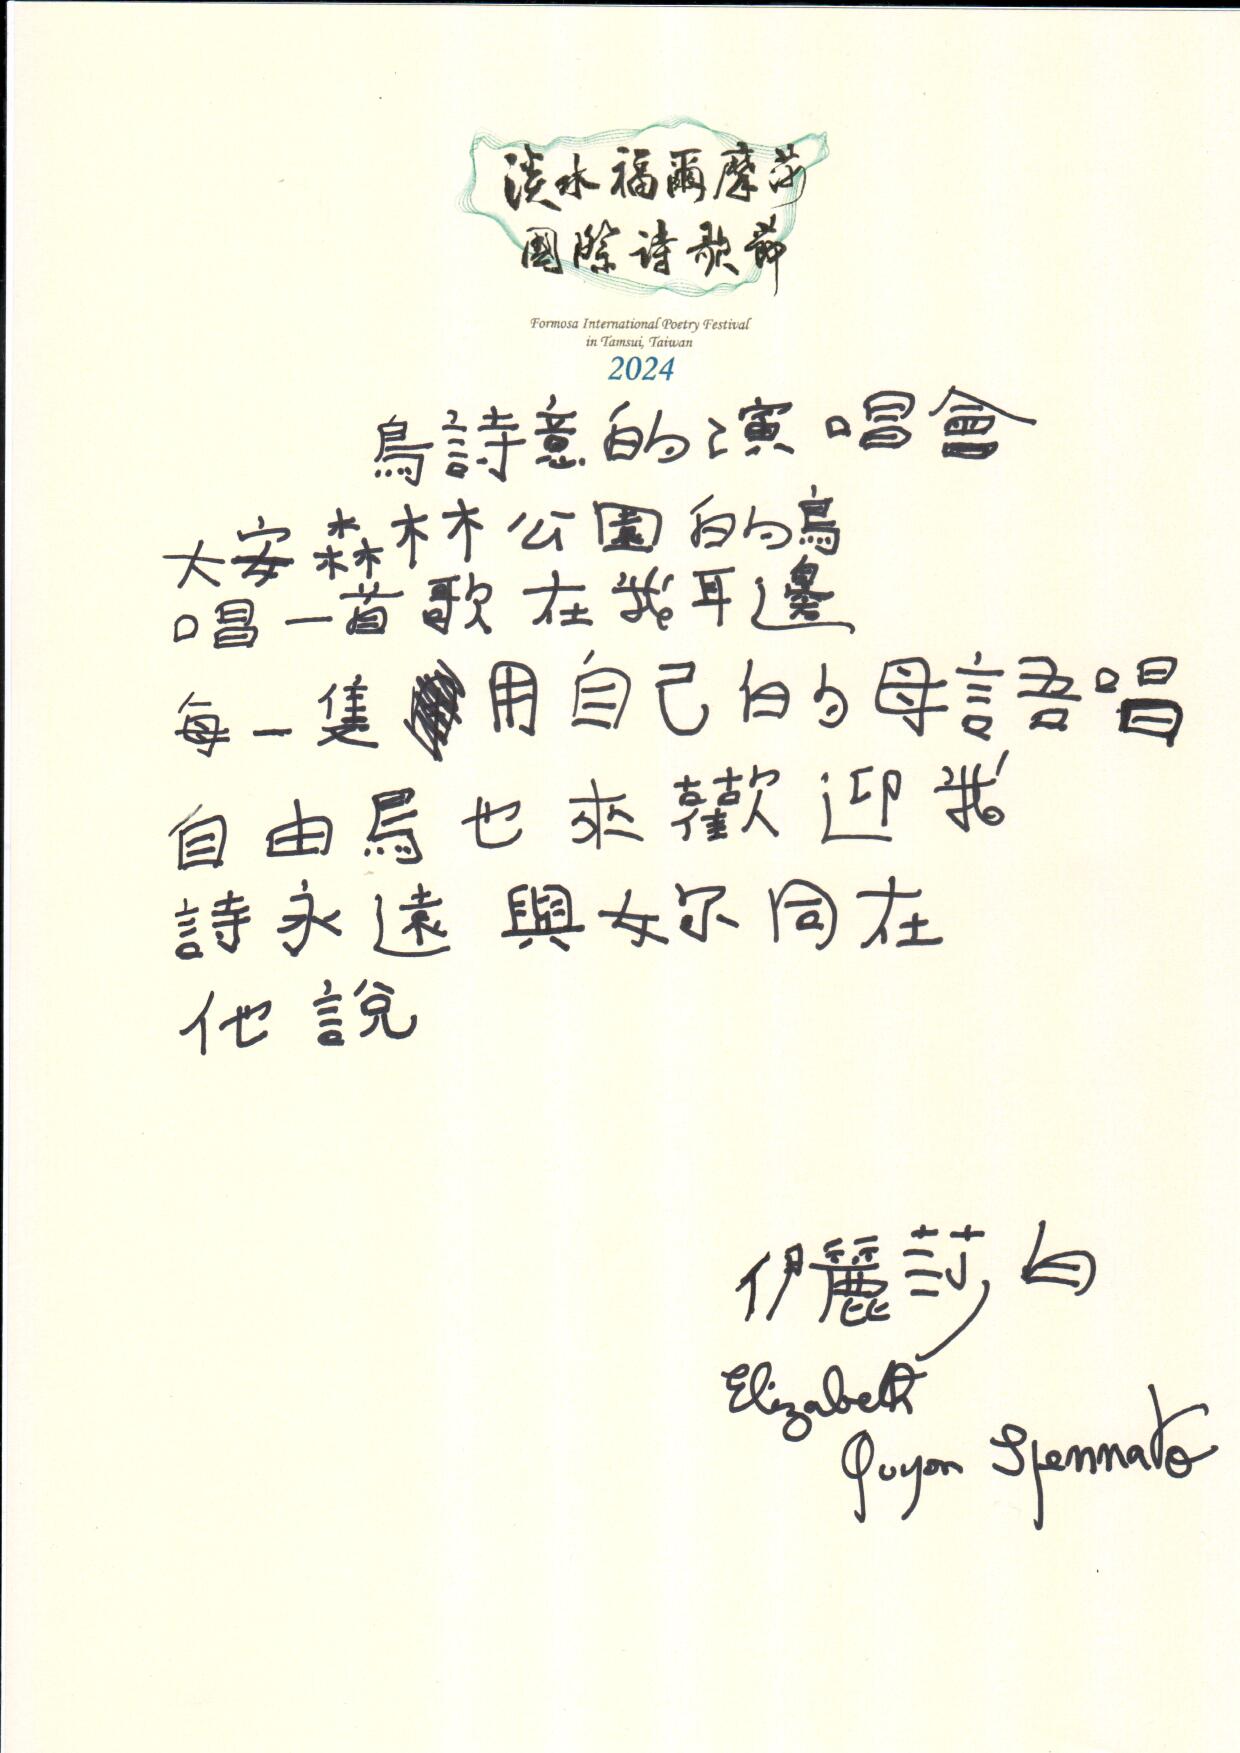 淡水福爾摩莎
國際詩歌節
Formosa International Poetry Festival
in Tamsui, Taiwan
2024
鳥詩意的演唱會
大安森林公園的鳥
唱一首歌在我耳邊
每一隻用自己的母語唱
自由鳥也來歡迎我
詩永遠與妳同在
他說
伊麗莎白
Elizabeth
Guyon Spennato